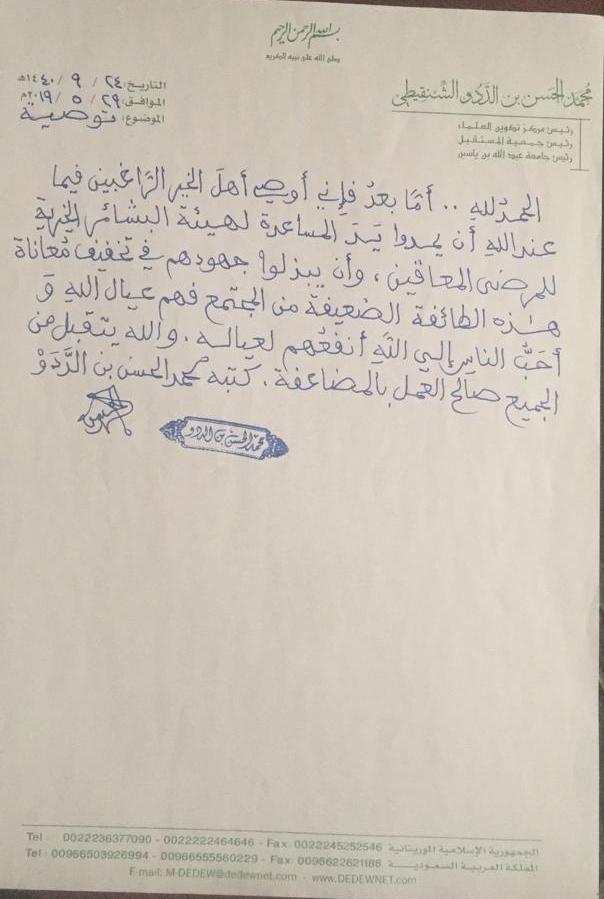 بسم الله الرحمن الرحيم
صلى الله على نبيه الكريم
محمد الحسن بن الددو الشنقيطي
رئيس مركز تكوين العلماء
رئيس جمعية المستقبل
رئيس جامعة عبد الله بن ياسين
التاريخ: ٢٤ / ٩ / ١٤٤٠هـ
الموافق: ٢٩ / ٥ / ٢٠١٩م
الموضوع: توصية
الحمد لله .. أمَّا بعدُ فإني أوصي أهلَ الخير الرَّاغبين فيما
عند اللهِ أن يمدوا يَدَ المساعدة لهيئة البشائر الخيرية
للمرضى المعاقين، وأن يبذلوا جهودهم في تخفيف مُعاناة
هذه الطائفة الضعيفة من المجتمع فهم عيال اللهِ وَ
أحَبُّ الناسِ إلى اللَّهِ أنفعُهم لعياله. والله يتقبل من
الجميع صالح العمل بالمضاعفة. كتبه محمد الحسن بن الدَّدَوْ
محمد الحسن بن الددو
Tel : 0022236377090 - 0022222464646 - Fax: 0022245252546 الجمهورية الإسلامية الموريتانية
Tel : 00966503926994 - 00966555560229 - Fax: 0096622621188 المملكة العربية السعودية
E-mail: M-DEDEW@dedewnet.com - www.DEDEWNET.com